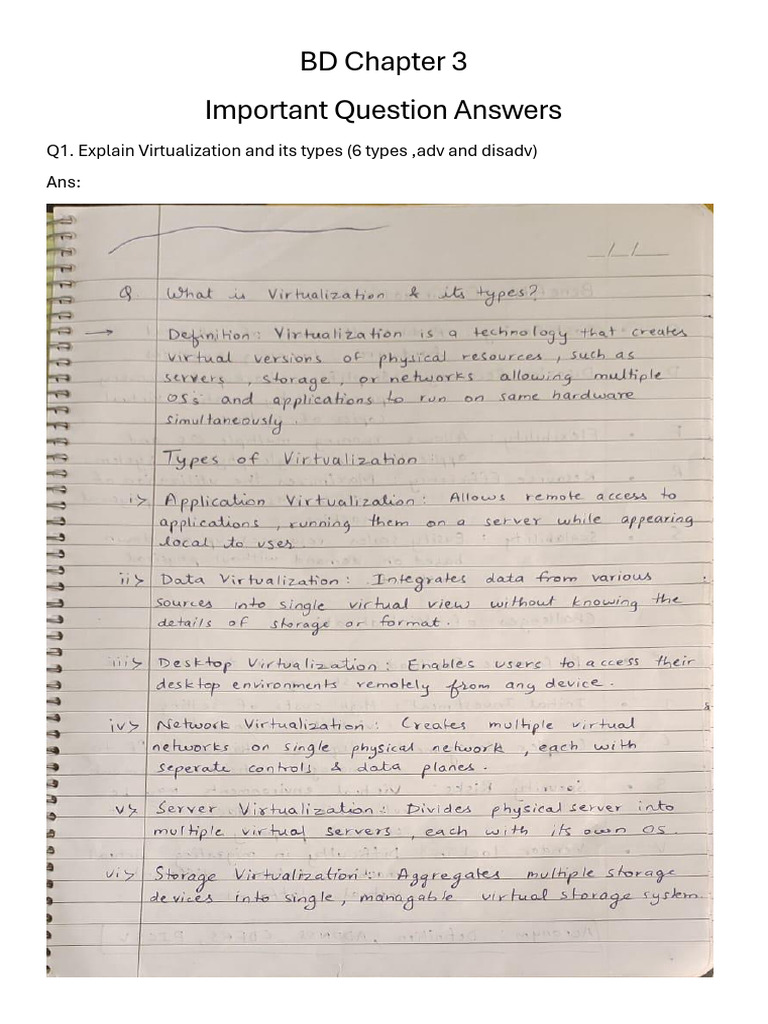 BD Chapter 3
Important Question Answers
Q1. Explain Virtualization and its types (6 types ,adv and disadv)
Ans:
_/_/__
Q What is Virtualization & its types?
→ Definition: Virtualization is a technology that creates
virtual versions of physical resources, such as
servers, storage, or networks allowing multiple
OS's and applications to run on same hardware
simultaneously
Types of Virtualization
i> Application Virtualization: Allows remote access to
applications, running them on a server while appearing
local to user.
ii> Data Virtualization: Integrates data from various
sources into single virtual view without knowing the
details of storage or format.
iii> Desktop Virtualization: Enables users to access their
desktop environments remotely from any device.
iv> Network Virtualization: Creates multiple virtual
networks on single physical network, each with
seperate controls & data planes.
v> Server Virtualization: Divides physical server into
multiple virtual servers, each with its own OS.
vi> Storage Virtualization: Aggregates multiple storage
devices into single, managable virtual storage system.